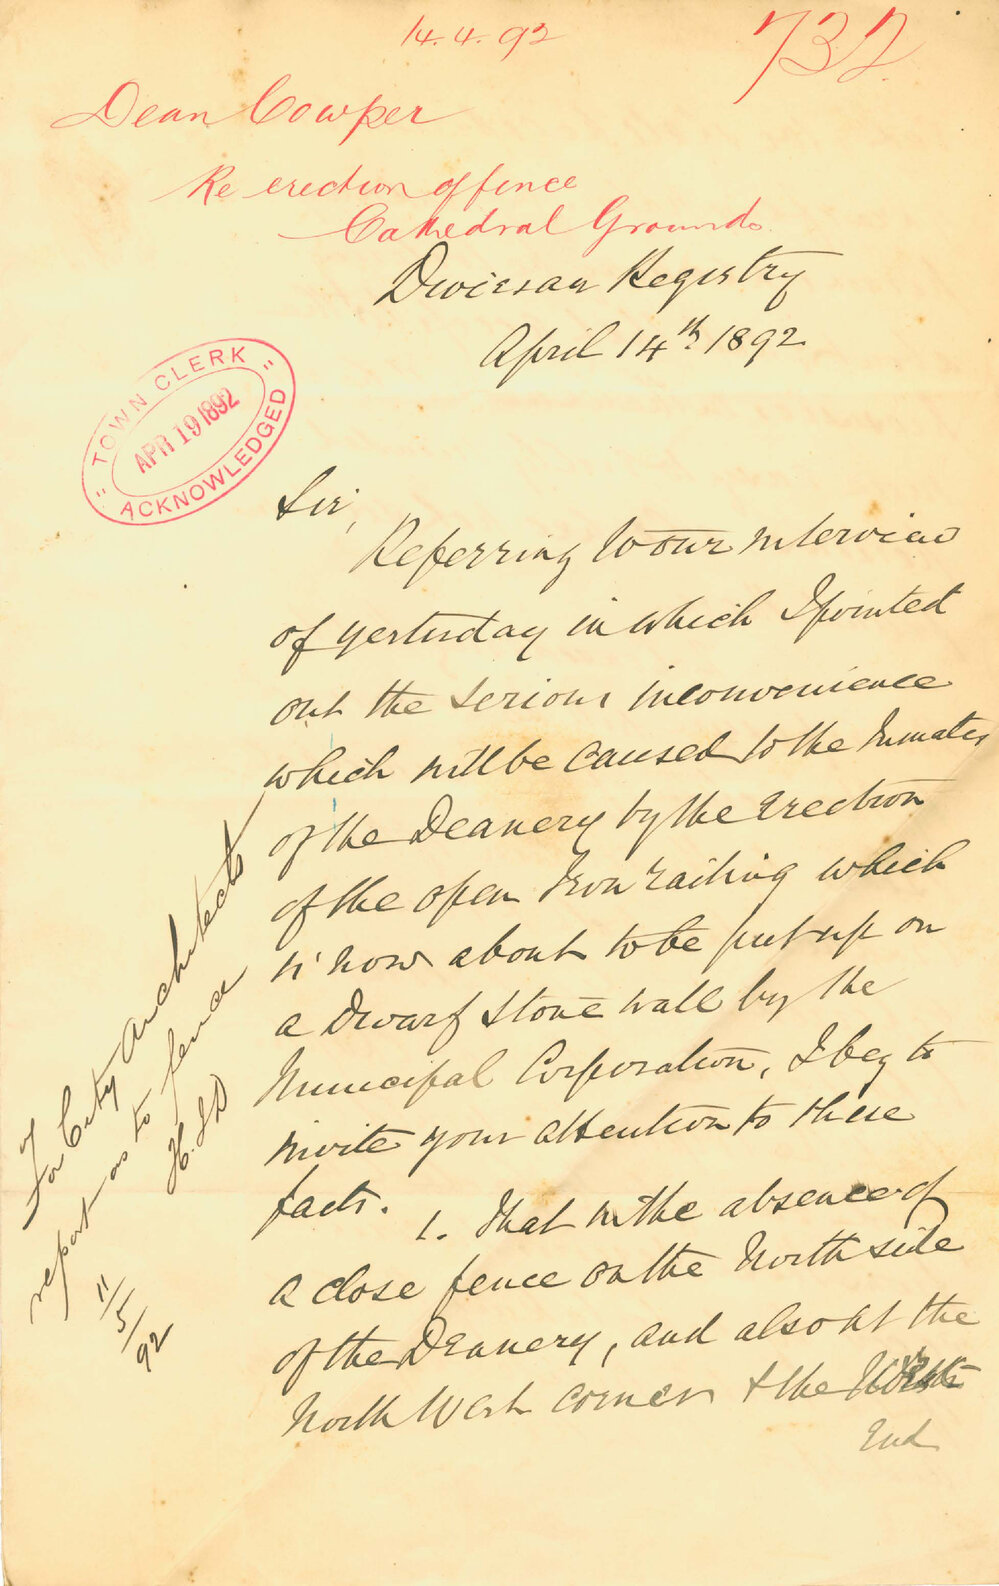 14.4.92
732
Dean Cowper
Re erection of fence
Cathedral Grounds
Diocesan Registry
April 14th 1892
"TOWN CLERK"
APR 19 1892
ACKNOWLEDGED
Sir,
Referring to our interview
of yesterday in which I pointed
out the serious inconvenience
which will be caused to the Inmates
of the Deanery by the erection
of the open Iron railing which
is now about to be put up on
a Dwarf stone wall by the
Municipal Corporation, I beg to
invite your attention to these
facts. 1. That in the absence of
a close fence on the North side
of the Deanery, and also at the
North West corner & the
End
For City Architects
report as to fence
11/5/92